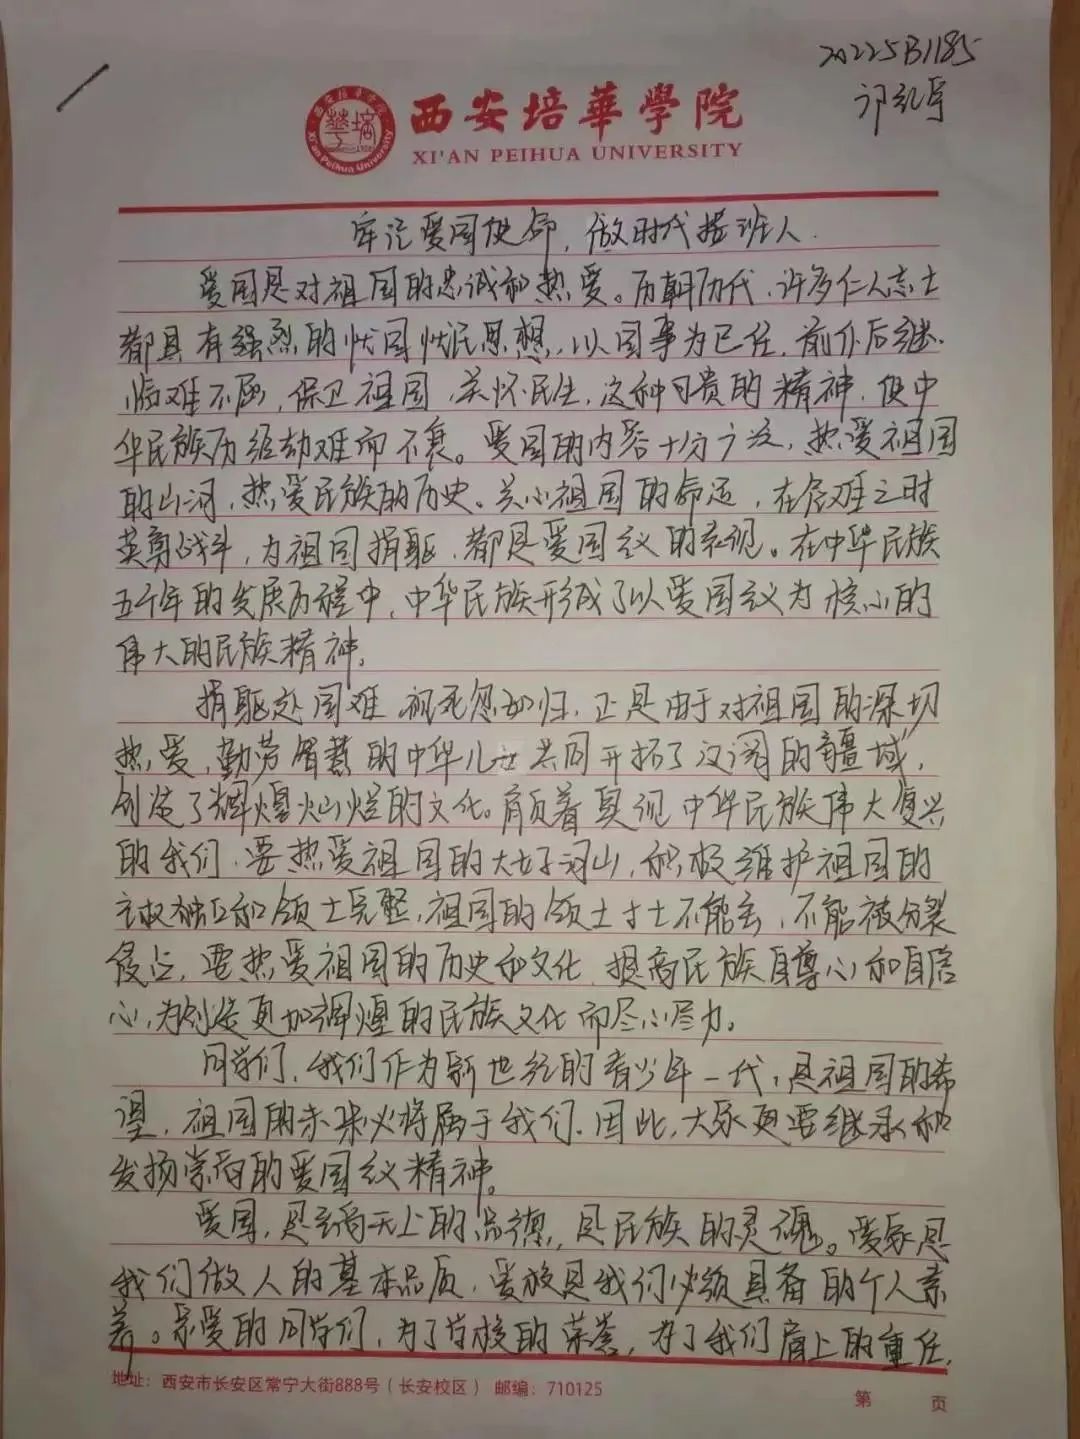 20225B1185
西安培華學院
XI'AN PEIHUA UNIVERSITY
西安培华学院
Xi'an Peihua University
牢记爱国使命,做时代接班人.
爱国是对祖国的忠诚和热爱。历朝历代,许多仁人志士
都具有强烈的忧国忧民思想,以国事为己任,前仆后继,
临难不屈,保卫祖国,关怀民生,这种可贵的精神,使中
华民族历经劫难而不衰。爱国的内容十分广泛,热爱祖国
的山河,热爱民族的历史。关心祖国的命运,在危难之时
英勇战斗,为祖国捐躯,都是爱国主义的表现。在中华民族
五千年的发展历程中,中华民族形成了以爱国主义为核心的
伟大的民族精神。
捐躯赴国难 视死忽如归,正是由于对祖国的深切
热爱,勤劳智慧的中华儿女共同开拓了辽阔的疆域,
创造了辉煌灿烂的文化。肩负着实现中华民族伟大复兴
的我们,要热爱祖国的大好河山,积极维护祖国的
主权独立和领土完整,祖国的领土寸土不能丢,不能被分裂
侵占,要热爱祖国的历史和文化,提高民族自尊心和自信
心,为创造更加辉煌的民族文化而尽心尽力。
同学们,我们作为新世纪的青少年一代,是祖国的希
望,祖国的未来必将属于我们.因此,大家更要继承和
发扬崇高的爱国主义精神。
爱国,是至高无上的品德,是民族的灵魂。爱家是
我们做人的基本品质,爱校是我们必须具备的个人素
养。亲爱的同学们,为了学校的荣誉,为了我们肩上的重任,
地址:西安市长安区常宁大街888号(长安校区) 邮编:710125
第 页